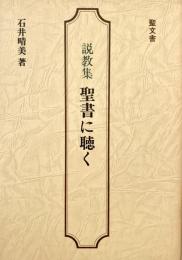 聖文書
説教集 聖書に聴く
石井晴美 著